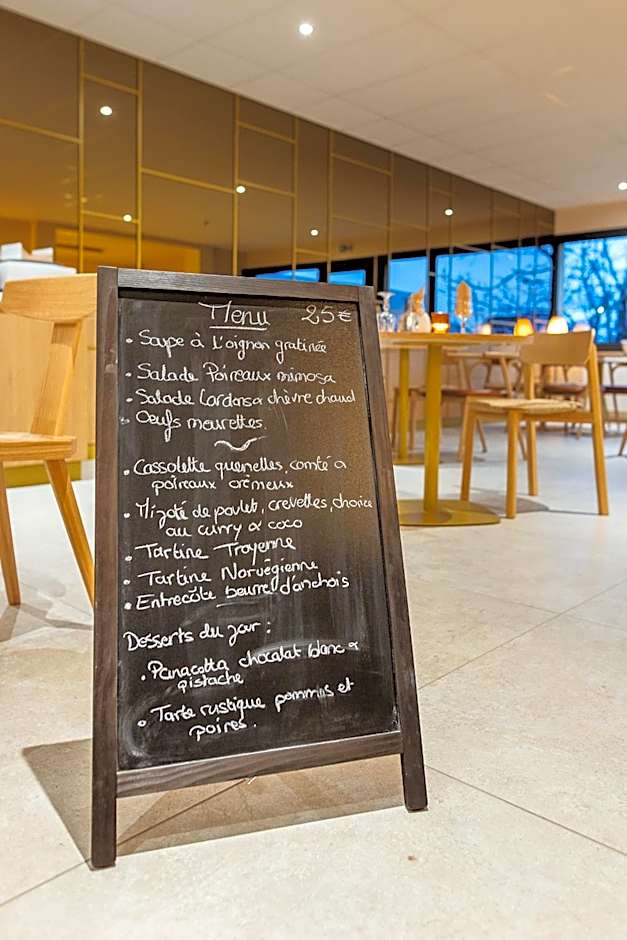 Menu 25€
• Soupe à L'oignon gratinée
• Salade Poireaux mimosa
• Salade Lardons & chèvre chaud
• Oeufs meurettes.
• Cassolette quenelles, comté &
poireaux crémeux
• Mijoté de poulet, crevettes, chorizo
au curry & coco
• Tartine Troyenne
• Tartine Norvégienne
• Entrecôte beurre d'anchois
Desserts du jour :
• Panacotta chocolat blanc &
pistache
• Tarte rustique pommes et
poires.